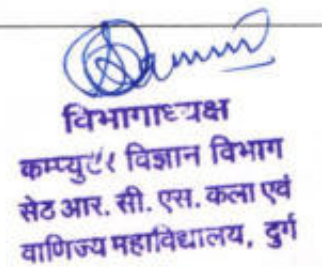 विभागाध्यक्ष
कम्प्युटर विज्ञान विभाग
सेठ आर. सी. एस. कला एवं
वाणिज्य महाविधालय, दुर्ग